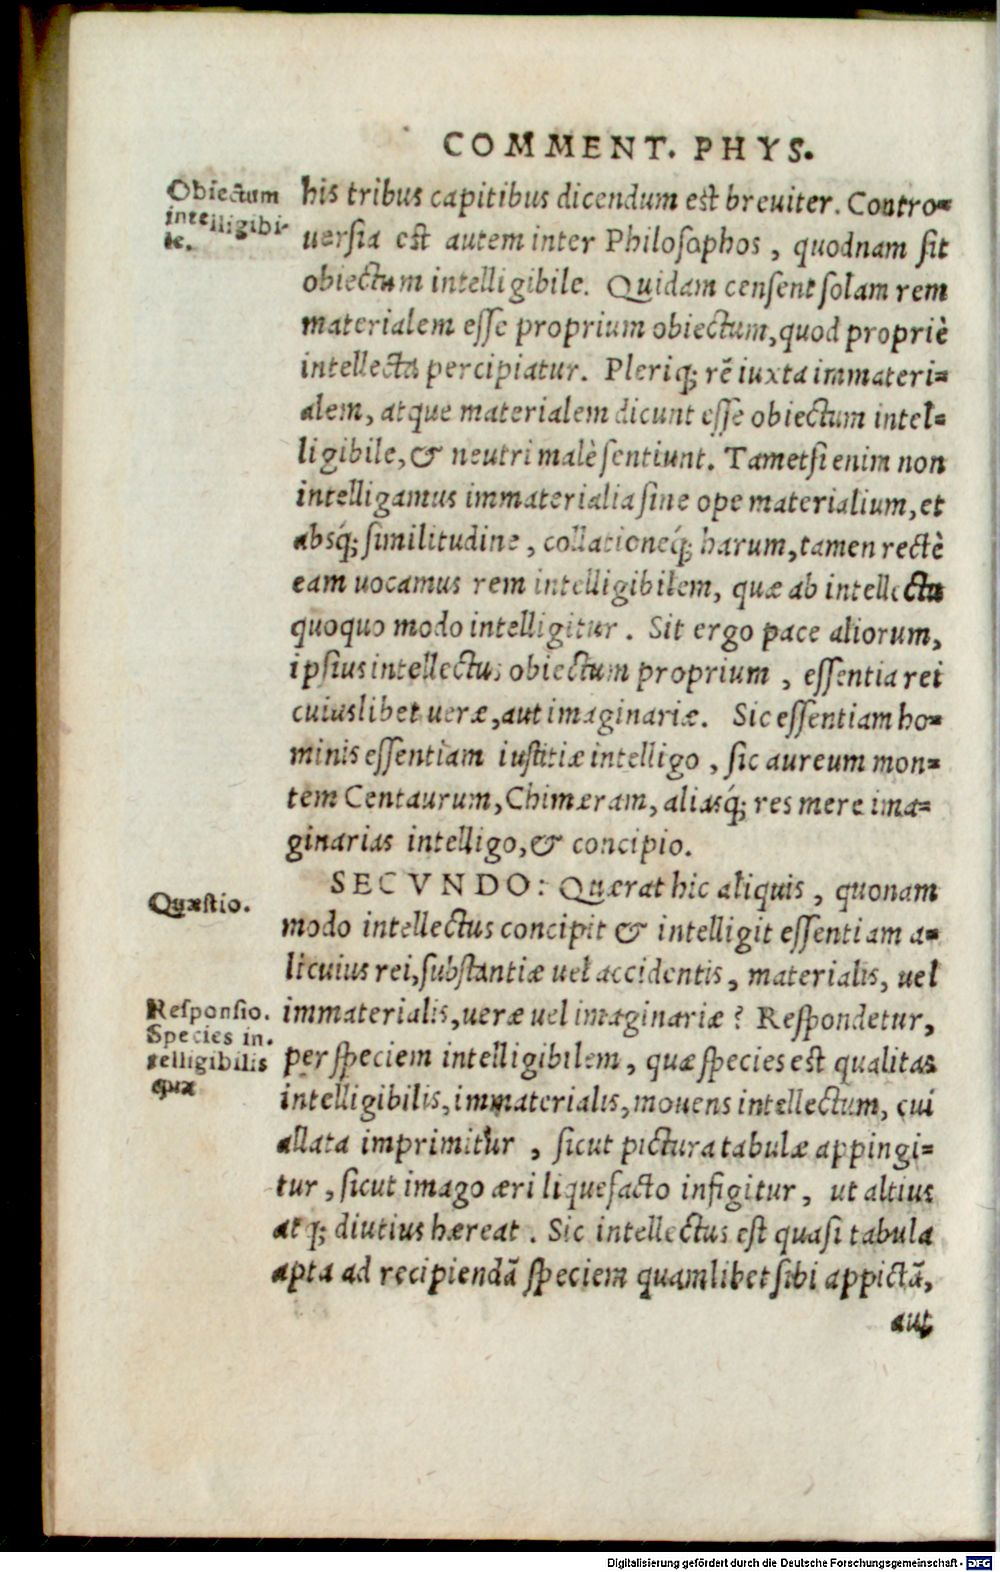 COMMENT. PHYS.
Obiectum
intelligibi-
le.
his tribus capitibus dicendum est breuiter. Contro-
uersia est autem inter Philosophos, quodnam sit
obiectum intelligibile. Quidam censent solam rem
materialem esse proprium obiectum, quod propriè
intellectu percipiatur. Pleriq; rẽ iuxta immateri-
alem, atque materialem dicunt esse obiectum intel-
ligibile, & neutri malè sentiunt. Tametsi enim non
intelligamus immaterialia sine ope materialium, et
absq́; similitudine, collationeq́; harum, tamen rectè
eam uocamus rem intelligibilem, quæ ab intellectu
quoquo modo intelligitur. Sit ergo pace aliorum,
ipsius intellectus obiectum proprium, essentia rei
cuiuslibet ueræ, aut imaginariæ. Sic essentiam ho-
minis essentiam iustitiæ intelligo, sic aureum mon-
tem Centaurum, Chimæram, aliasq́; res mere ima-
ginarias intelligo, & concipio.
Quæstio.
SECVNDO: Quærat hic aliquis, quonam
modo intellectus concipit & intelligit essentiam a-
licuius rei, substantiæ uel accidentis, materialis, uel
Responsio.
Species in-
telligibilis
quæ
immaterialis, ueræ uel imaginariæ? Respondetur,
per speciem intelligibilem, quæ species est qualitas
intelligibilis, immaterialis, mouens intellectum, cui
allata imprimitur, sicut pictura tabulæ appingi-
tur, sicut imago æri liquefacto infigitur, ut altius
atq; diutius hæreat. Sic intellectus est quasi tabula
apta ad recipiendã speciem quamlibet sibi appictã,
aut
Digitalisierung gefördert durch die Deutsche Forschungsgemeinschaft - DFG